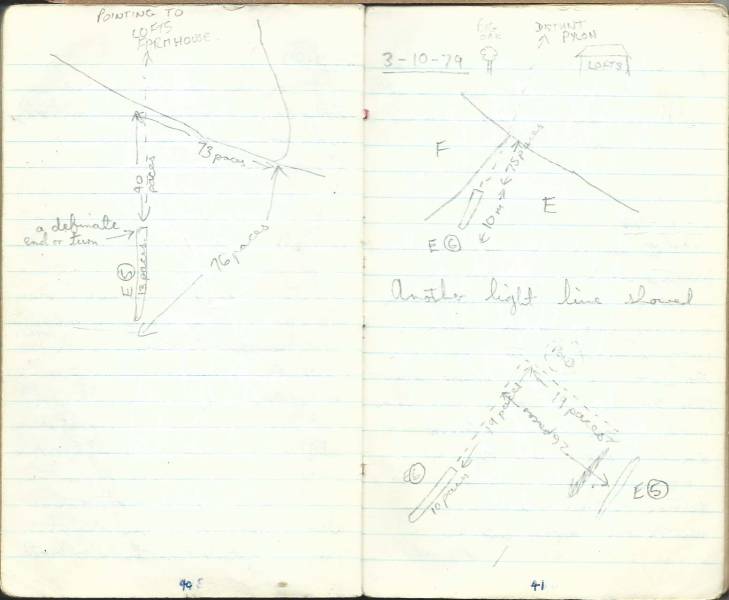 POINTING TO
LOFTS
FARMHOUSE.
73 paces
40 paces
a definate
end or turn
E 5
13 paces
76 paces
40 E
3-10-79
BIG
OAK
DISTANT
PYLON
LOFTS
F
75 paces
10 m
E
E 6
Another light line showed
19 paces
19 paces
26 paces
E 6
10 paces
E 5
41